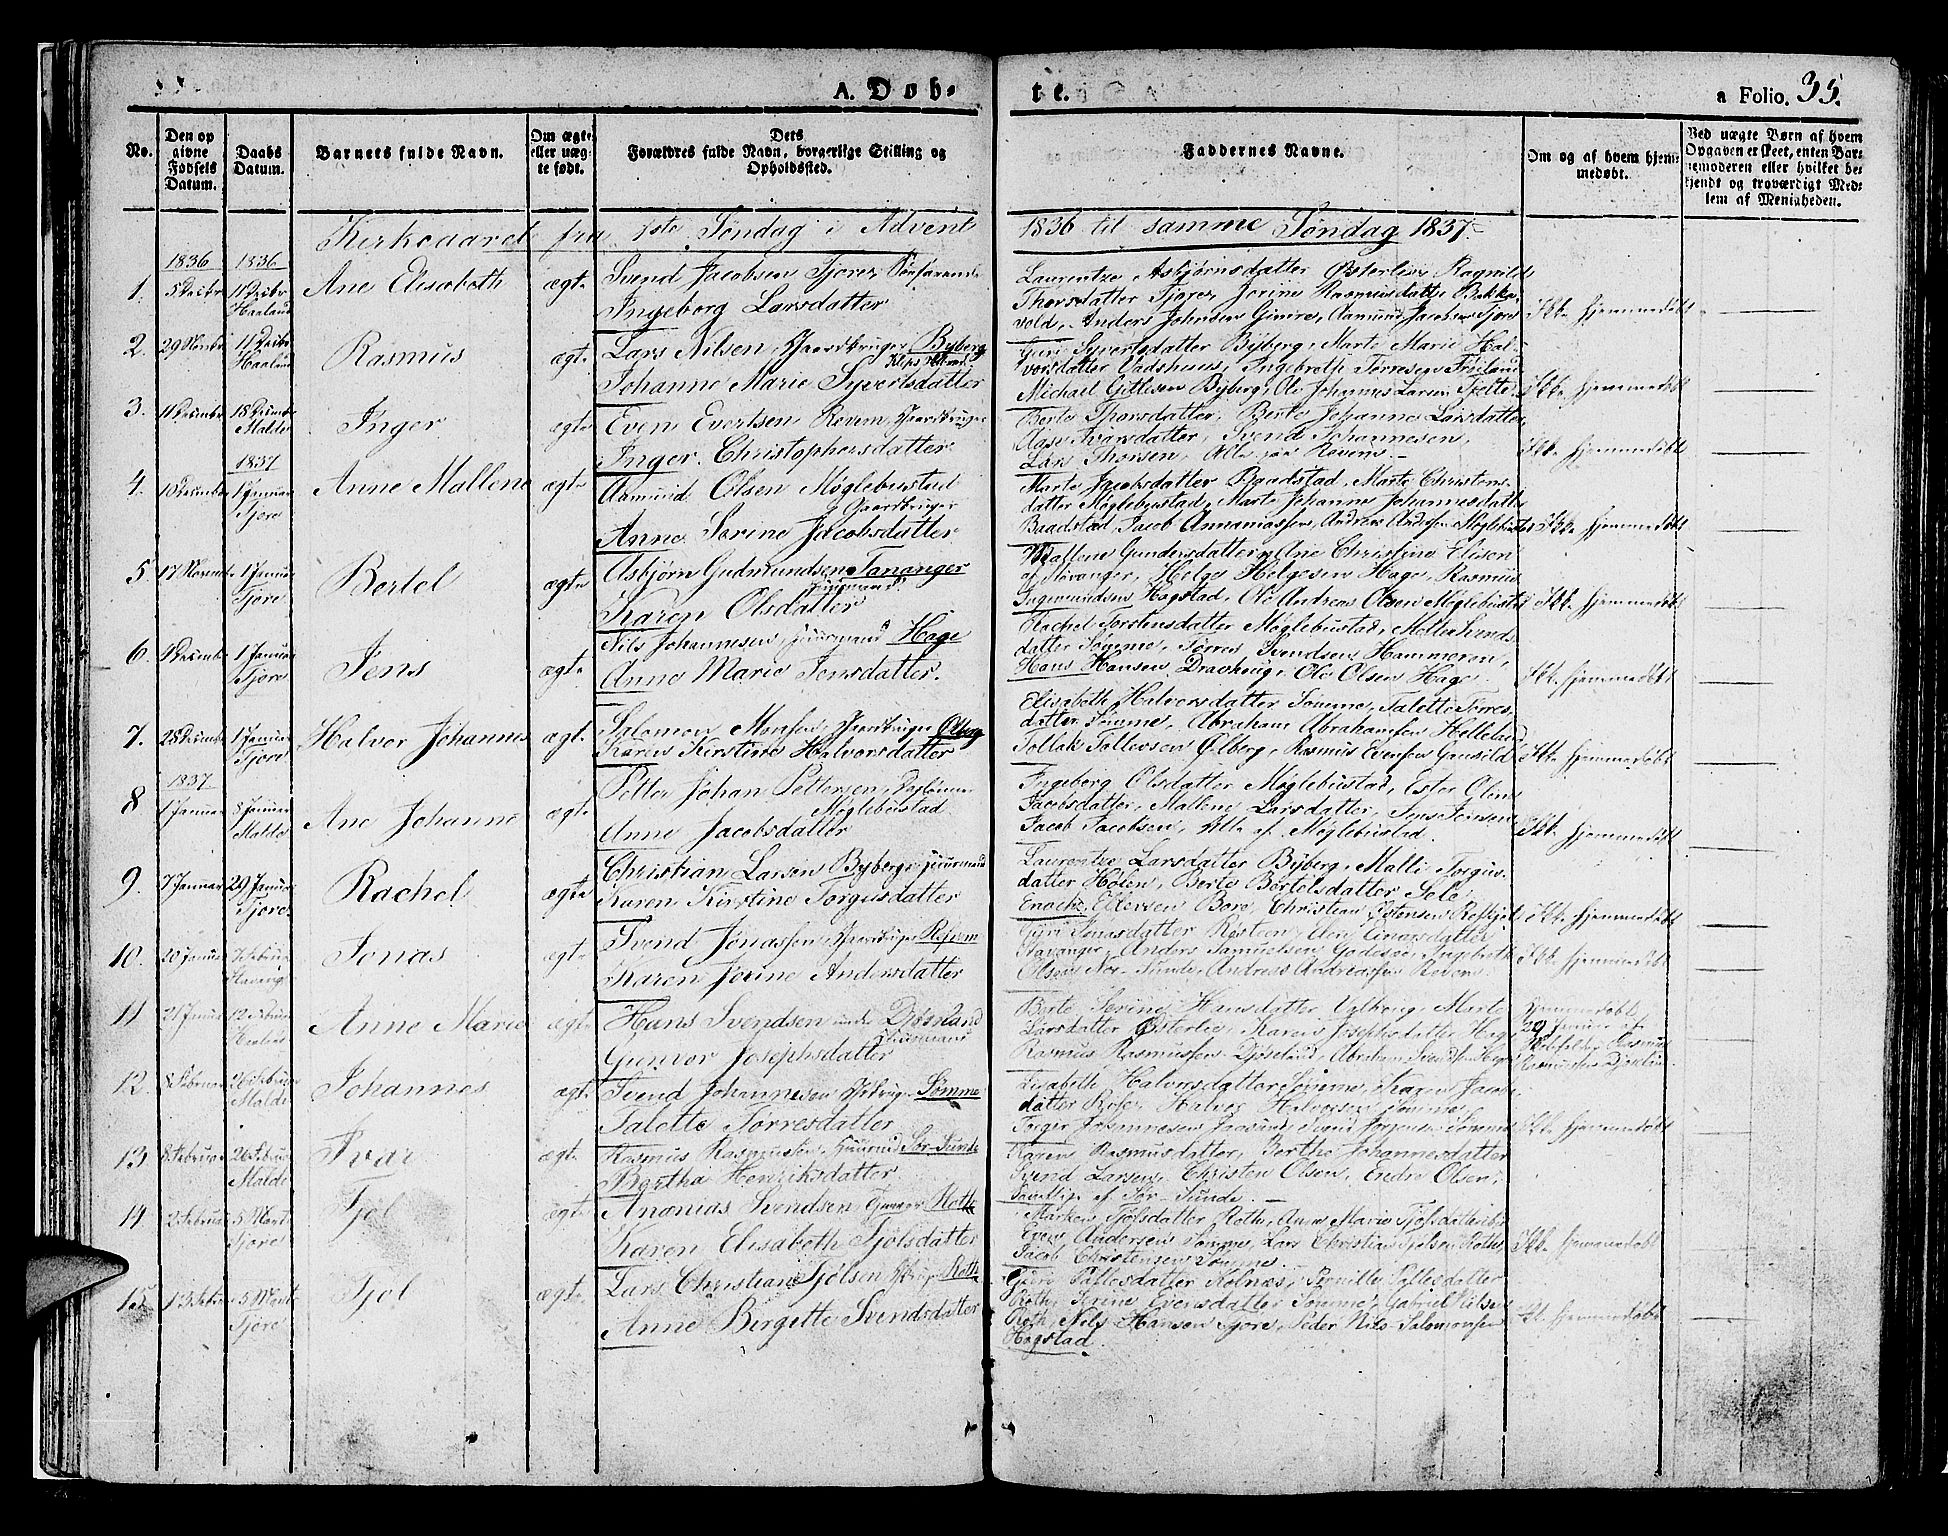 A. Døb-
te.
a Folio. 35.
No.
Den op
givne
Fødsels
Datum.
Daabs
Datum.
Barnets fulde Navn.
Om ægte
eller uæg-
te født.
Dets
Forældres fulde Navn, borgerlige Stilling og
Opholdssted.
Faddernes Navne.
Om og af hvem hjem-
medøbt.
Ved uægte Børn af hvem
Opgaven er skeet, enten Bar-
nemoderen eller hvilket be-
kjendt og troværdigt Med-
lem af Menigheden.
Kirkeaaret fra 1ste Søndag i Advent 1836 til samme Søndag 1837.
1836 1836
1. 5 Decbr 11 Decbr Haaland Ane Elisabeth ægte
Svend Jacobsen Tjore, Søefarende
Ingeborg Larsdatter
Laurentze Asbjørnsdatter Østerlie, Ragnild
Thorsdatter Tjore, Jorine Rasmusdatter Bakke-
vold, Anders Johnsen Gimre, Aamund Jacobsen Tjore
Ikke hjemmedøbt
2. 29 Novembr 11 Decbr Haaland Rasmus ægte
Lars Nilsen, Gaardbruger Byberg
Johanne Marie Syvertsdatter
Guri Syvertsdatter Byberg, Marte Marie Hal-
vorsdatter Vadshuus, Ingebrethe Tørresen
Michael Gitlesen Byberg, Ole Johannes Larsen
Ikke hjemmedøbt
3. 11 Decembr 18 Decembr Malde Inger ægte
Even Evertsen Revem, Gaardbruger
Inger Christophersdatter
Berte Thorsdatter, Berte Johanne Larsdatter,
Aase Ivarsdatter, Svend Johannesen,
Lars Thorsen, Alle paa Revem.
Ikke hjemmedøbt
1837
4. 10 Decembr 1 Januar Tjore Anne Mallene ægte
Aamund Olsen Møglebustad
Gaardbruger
Anne Serine Jacobsdatter
Marte Jacobsdatter Baadstad, Marte Christens-
datter Møglebustad, Marte Johanne Johannesdatter
Baadstad, Jacob Annaniassen, Andreas Andersen Møglebustad
Ikke hjemmedøbt
5 17 Novembr 1 Januar Tjore Bertel ægte
Asbjørn Gudmundsen Tananger
Huusmand
Karen Olsdatter
Mallene Gundersdatter, Ane Christine Elisen
af Stavanger, Helge Helgesen Hage, Rasmus
Ingemundsen Hogstad, Ole Andreas Olsen Møglebustad
Ikke hjemmedøbt
6. Decembr 1 Januar Tjore Jens ægte
Nils Johannesen Huusmand Hage
Anne Marie Jensdatter.
Rachel Torstensdatter Møglebustad, Malle Svends-
datter Sømme, Tørres Svendsen Hammeren,
Hans Hansen Drachoug, Ole Olsen Hage.
Ikke hjemmedøbt
7. 28 Decembr 1 Januar Tjore Halvor Johannes ægte
Salomon Monsen, Gaardbruger Ølberg
Karen Kirstine Halvorsdatter
Elisabeth Halvorsdatter Sømme, Talette Tørres-
datter Sømme, Abraham Abrahamsen Helleland
Tollak Tollevsen Ølberg, Rasmus Evensen
Ikke hjemmedøbt
1837
8 1 Januar 8 Januar Malde Ane Johanne ægte
Petter Johan Pettersen,
Møglebustad
Anne Jacobsdatter
Ingeborg Olsdatter Møglebustad, Ester Olene
Jacobsdatter, Mallene Larsdatter, Jens Jensen
Jacob Jacobsen, Alle af Møglebustad.
Ikke hjemmedøbt
9. 7 Januar 29 Januar Tjore Rachel ægte
Christian Larsen Byberg, Huusmand
Karen Kirstine Torgusdatter
Laurentze Larsdatter Byberg, Malli Torgus-
datter Hølen, Berte Bertelsdatter Sele
Enoch Edersen Bore, Christian Østensen
Ikke hjemmedøbt
10. 30 Januar Februar Jonas ægte
Svend Jonassen Gaardbruger
Karen Jorine Andersdatter
Guri Jonasdatter
Stavanger, Anders Samuelsen Godesøe, Ingebreth
Olsen Nor-Sunde, Andreas Andreassen Revem
Ikke hjemmedøbt
11 21 Januar 12 Februar Haaland Anne Marie ægte
Hans Svendsen under Djøseland
Huusmand
Gunvor Josephsdatter
Berte Serine Hansdatter Valberg, Marte
Larsdatter Østerlie, Karen Josephsdatter Hage
Rasmus Rasmussen Djøseland, Abraham Svendsen
hjemmedøbt
29 Januar af
Rasmus
Rasmussen Djøseland
12 8 Februar 26 Februar Malde Johannes ægte
Svend Johannesen Gbruger Sømme
Talette Tørresdatter
Lisabeth Halvorsdatter Sømme, Karen Jacobs-
datter Risa, Halvor Halvorsen Sømme
Torger Johannesen Jaasund, Svend Jørgensen Sømme
Ikke hjemmedøbt
13 8 Februar 26 Februar Malde Ivar ægte
Rasmus Rasmussen, Huusmd Sør-Sunde
Bertha Henriksdatter
Karen Rasmusdatter, Berthe Johannesdatter
Svend Larsen, Christen Olsen, Endre Olsen,
Samtlige af Sør-Sunde.
14 2 Februar 5 Marts Tjore Tjøl ægte
Ananias Svendsen Roth
Karen Elisabeth Tjølsdatter
Marken Tjølsdatter Roth, Anne Marie Tjølsdatter
Even Andersen Sømme, Lars Christian Tjølsen Roth,
Jacob Christensen Sømme.
Ikke hjemmedøbt
15. 13 Febr 5 Marts Tjore Tjøl ægte
Lars Christian Tjølsen, Gbruger Roth
Anne Birgitte Svendsdatter
Guri Pallesdatter Kolnæs, Pernille Pallesdatter
Roth, Serine Evensdatter Sømme, Gabriel Nilsen
Roth, Nils Hansen Tjore, Peder Nils Salomonsen
Hogstad.
Ikke hjemmedøbt